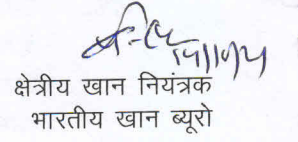 क्षेत्रीय खान नियंत्रक
भारतीय खान ब्यूरो